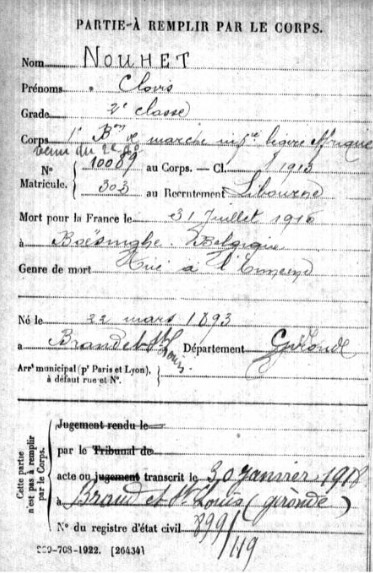 PARTIE-À REMPLIR PAR LE CORPS.
Nom NOUHET
Prénoms Clovis
Grade 2e classe
Corps 1er Bon de marche infie légère Afrique
venu du 2e
N° 10089 au Corps. — Cl. 1913
Matricule. 303 au Recrutement Libourne
Mort pour la France le 31 Juillet 1916
à Boësinghe. Belgique
Genre de mort Tué à l'Ennemi
Né le 22 mars 1893
à Braud et St Louis Département Gironde
Arrt municipal (pr Paris et Lyon),
à défaut rue et N°.
Cette partie
n'est pas à remplir
par le Corps.
Jugement rendu le
par le Tribunal de
acte ou jugement transcrit le 30 janvier 1918
à Braud et St Louis (gironde)
N° du registre d'état civil 899/119
-708-1922. [26434]